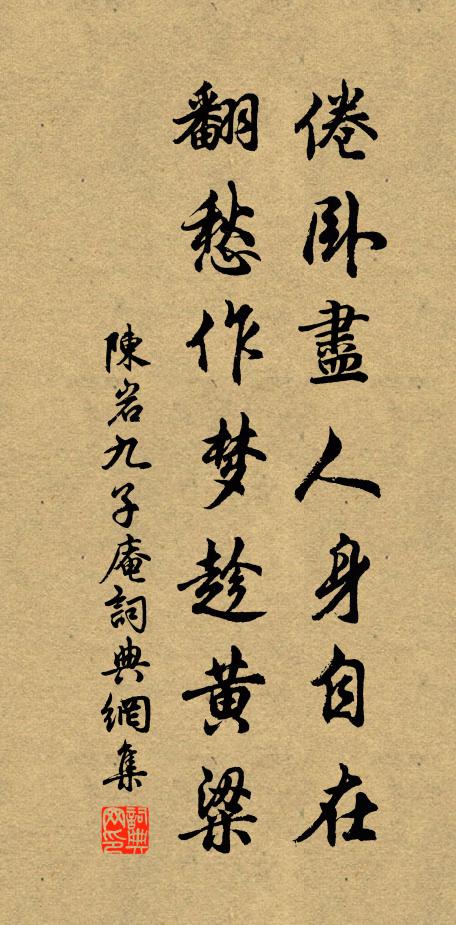 倦卧盡人身自在
翻愁作梦趁黄粱
陳岩九子庵詞典網集
詞典网印